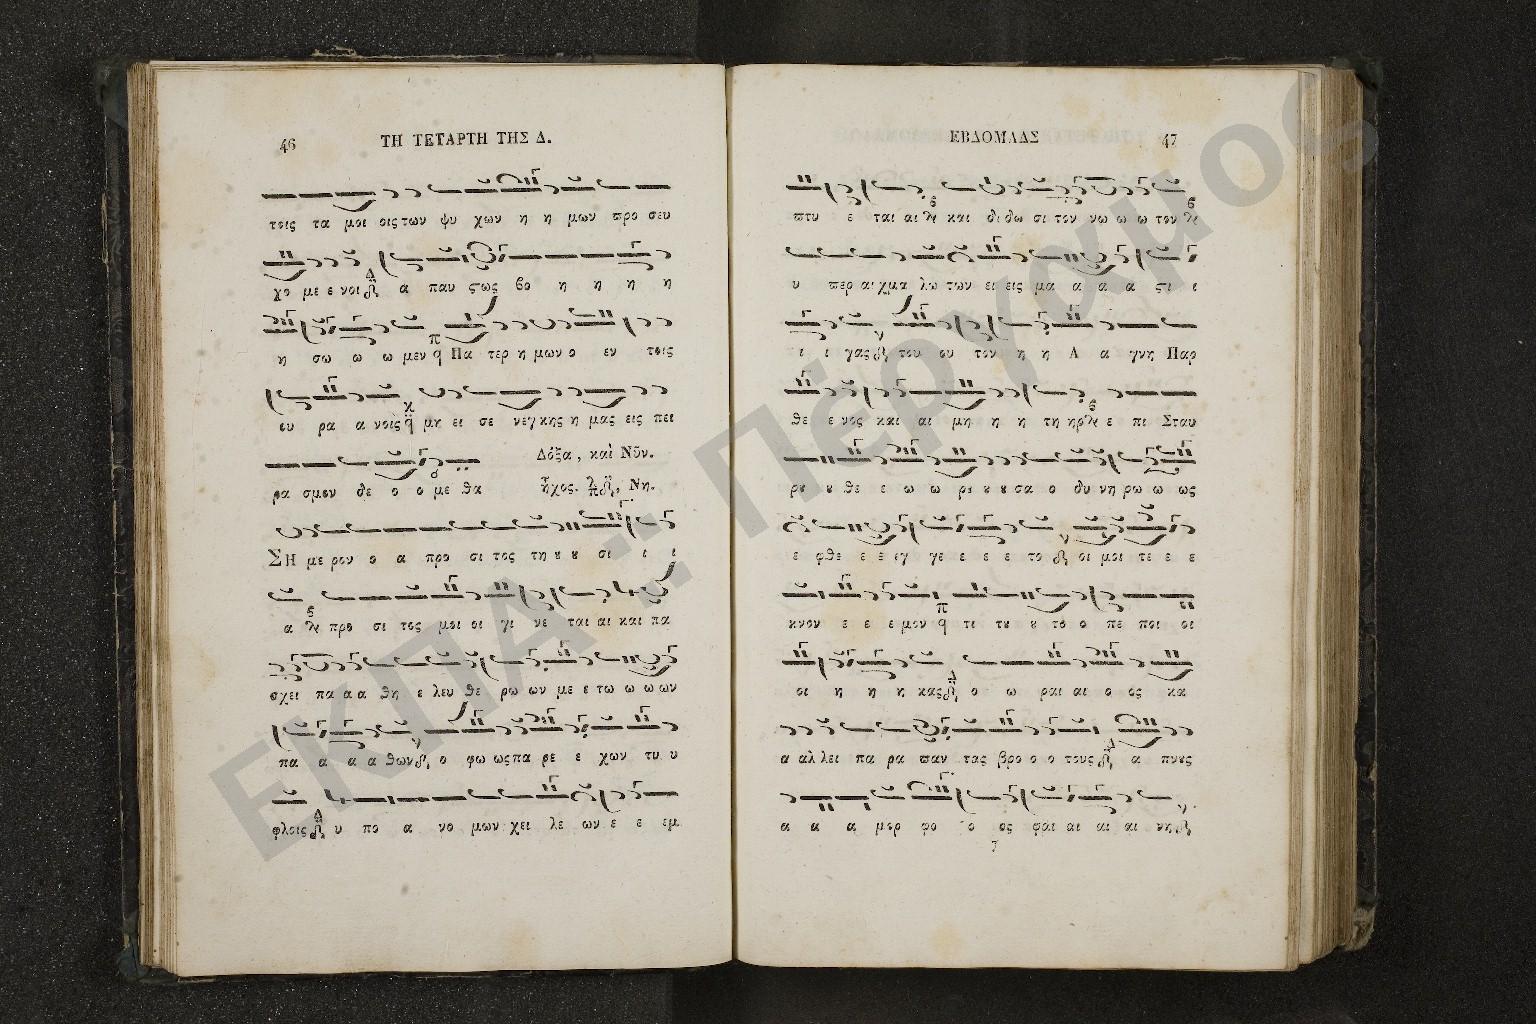 46 ΤΗ ΤΕΤΑΡΤΗ ΤΗΣ Δ.
τοις τα μοι οις των ψυ χων η η μων προ σευ
χο με ε νοι α παυ ςως βο η η η η
η σω ω ω μεν Πα τερ η μων ο εν τοις
ου ρα α νοις μη ει σε νεγκης η μας εις πει
ρα σμον θε ο ο με θα Δόξα, καὶ Νῦν.
ἦχος Νη.
ΣΗ με ρον ο α προ σι τος τη ȣ ȣ σι ι ι
α προ σι τος μοι οι γι νε ται αι και πα
σχει πα α α θη ε λευ θε ρω ων με ε τω ω ω ων
πα α α α θων ο φω ως πα ρε ε χων τυ υ
φλοις υ πο α νο μων χει λε ων ε ε εμ
ΕΒΔΟΜΑΔΣ 47
πτυ ε ται αι και δι δω σι τον νω ω ω τον
υ περ αι χμα λω των ει εις μα α α α ςι ι
ι ι γας του ου τον η η Α α γνη Παρ
θε ε νος και αι μη η η τη ηρ ε πι Σταυ
ρȣ ȣ θε ε ω ω ρȣ ȣ ȣ σα ο δυ νη ρω ω ως
ε φθε ε ε εγ γε ε ε ε το οι μοι τε ε ε
κνον ε ε ε μον τι τȣ ȣ ȣ το ο πε ποι οι
οι η η η κας ο ω ραι αι ο ος κα
α αλ λει πα ρα παν τας βρο ο ο τους α πνȣς
α α α μορ φο ο ος φαι αι αι αι νη
ΕΚΠΑ :: Πέργαμος